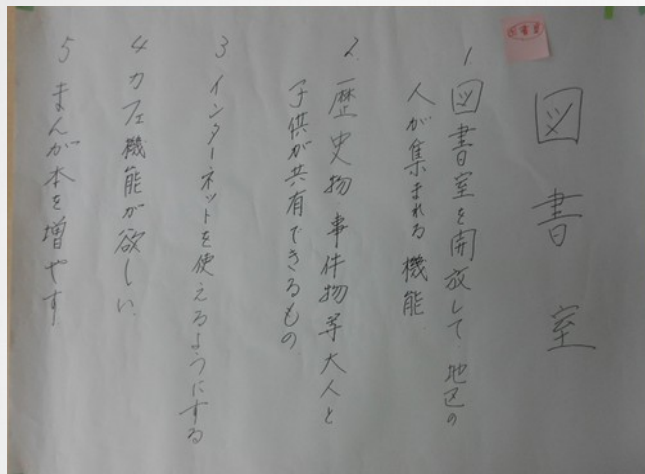 図書室
図書室
1 図書室を開放して、地区の
人が集まれる機能
2 歴史物・事件物等大人と
子供が共有できるもの
3 インターネットを使えるようにする
4 カフェ機能が欲しい
5 まんが本を増やす